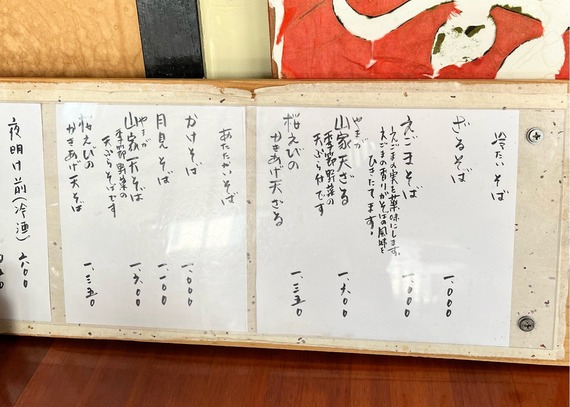 冷たい そば
ざるそば 一、〇〇〇
えごまそば 一、〇〇〇
えごまの実を薬味にします。
えごまの香りがそばの風味を
ひきたてます。
やまが
山家天ざる 一、六〇〇
季節野菜の
天ぷら付です
桜えびの
かきあげ天ざる 一、三五〇
あたたかいそば
かけそば 一、〇〇〇
月見そば 一、一〇〇
やまが
山家天そば 一、六〇〇
季節野菜の
天ぷらそばです
桜えびの
かきあげ天そば 一、三五〇
夜明け前(冷酒) 六〇〇